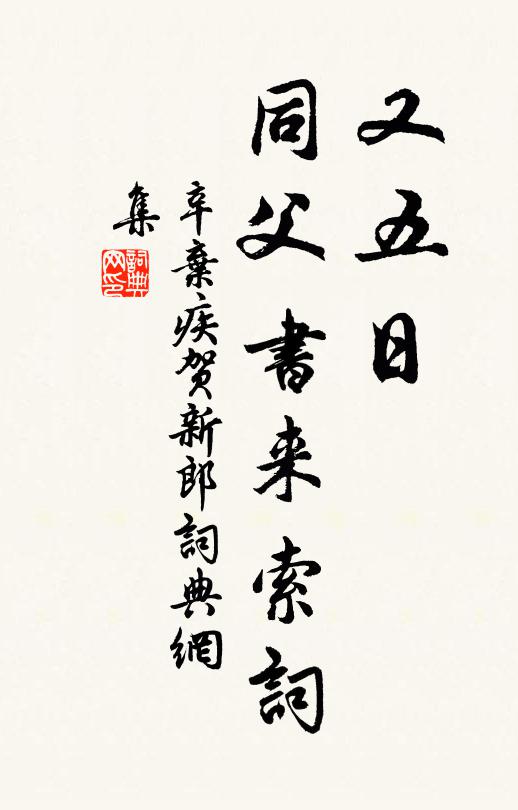 又五日
同父書来索詞
辛棄疾賀新郎詞典網
集
詞典
网印